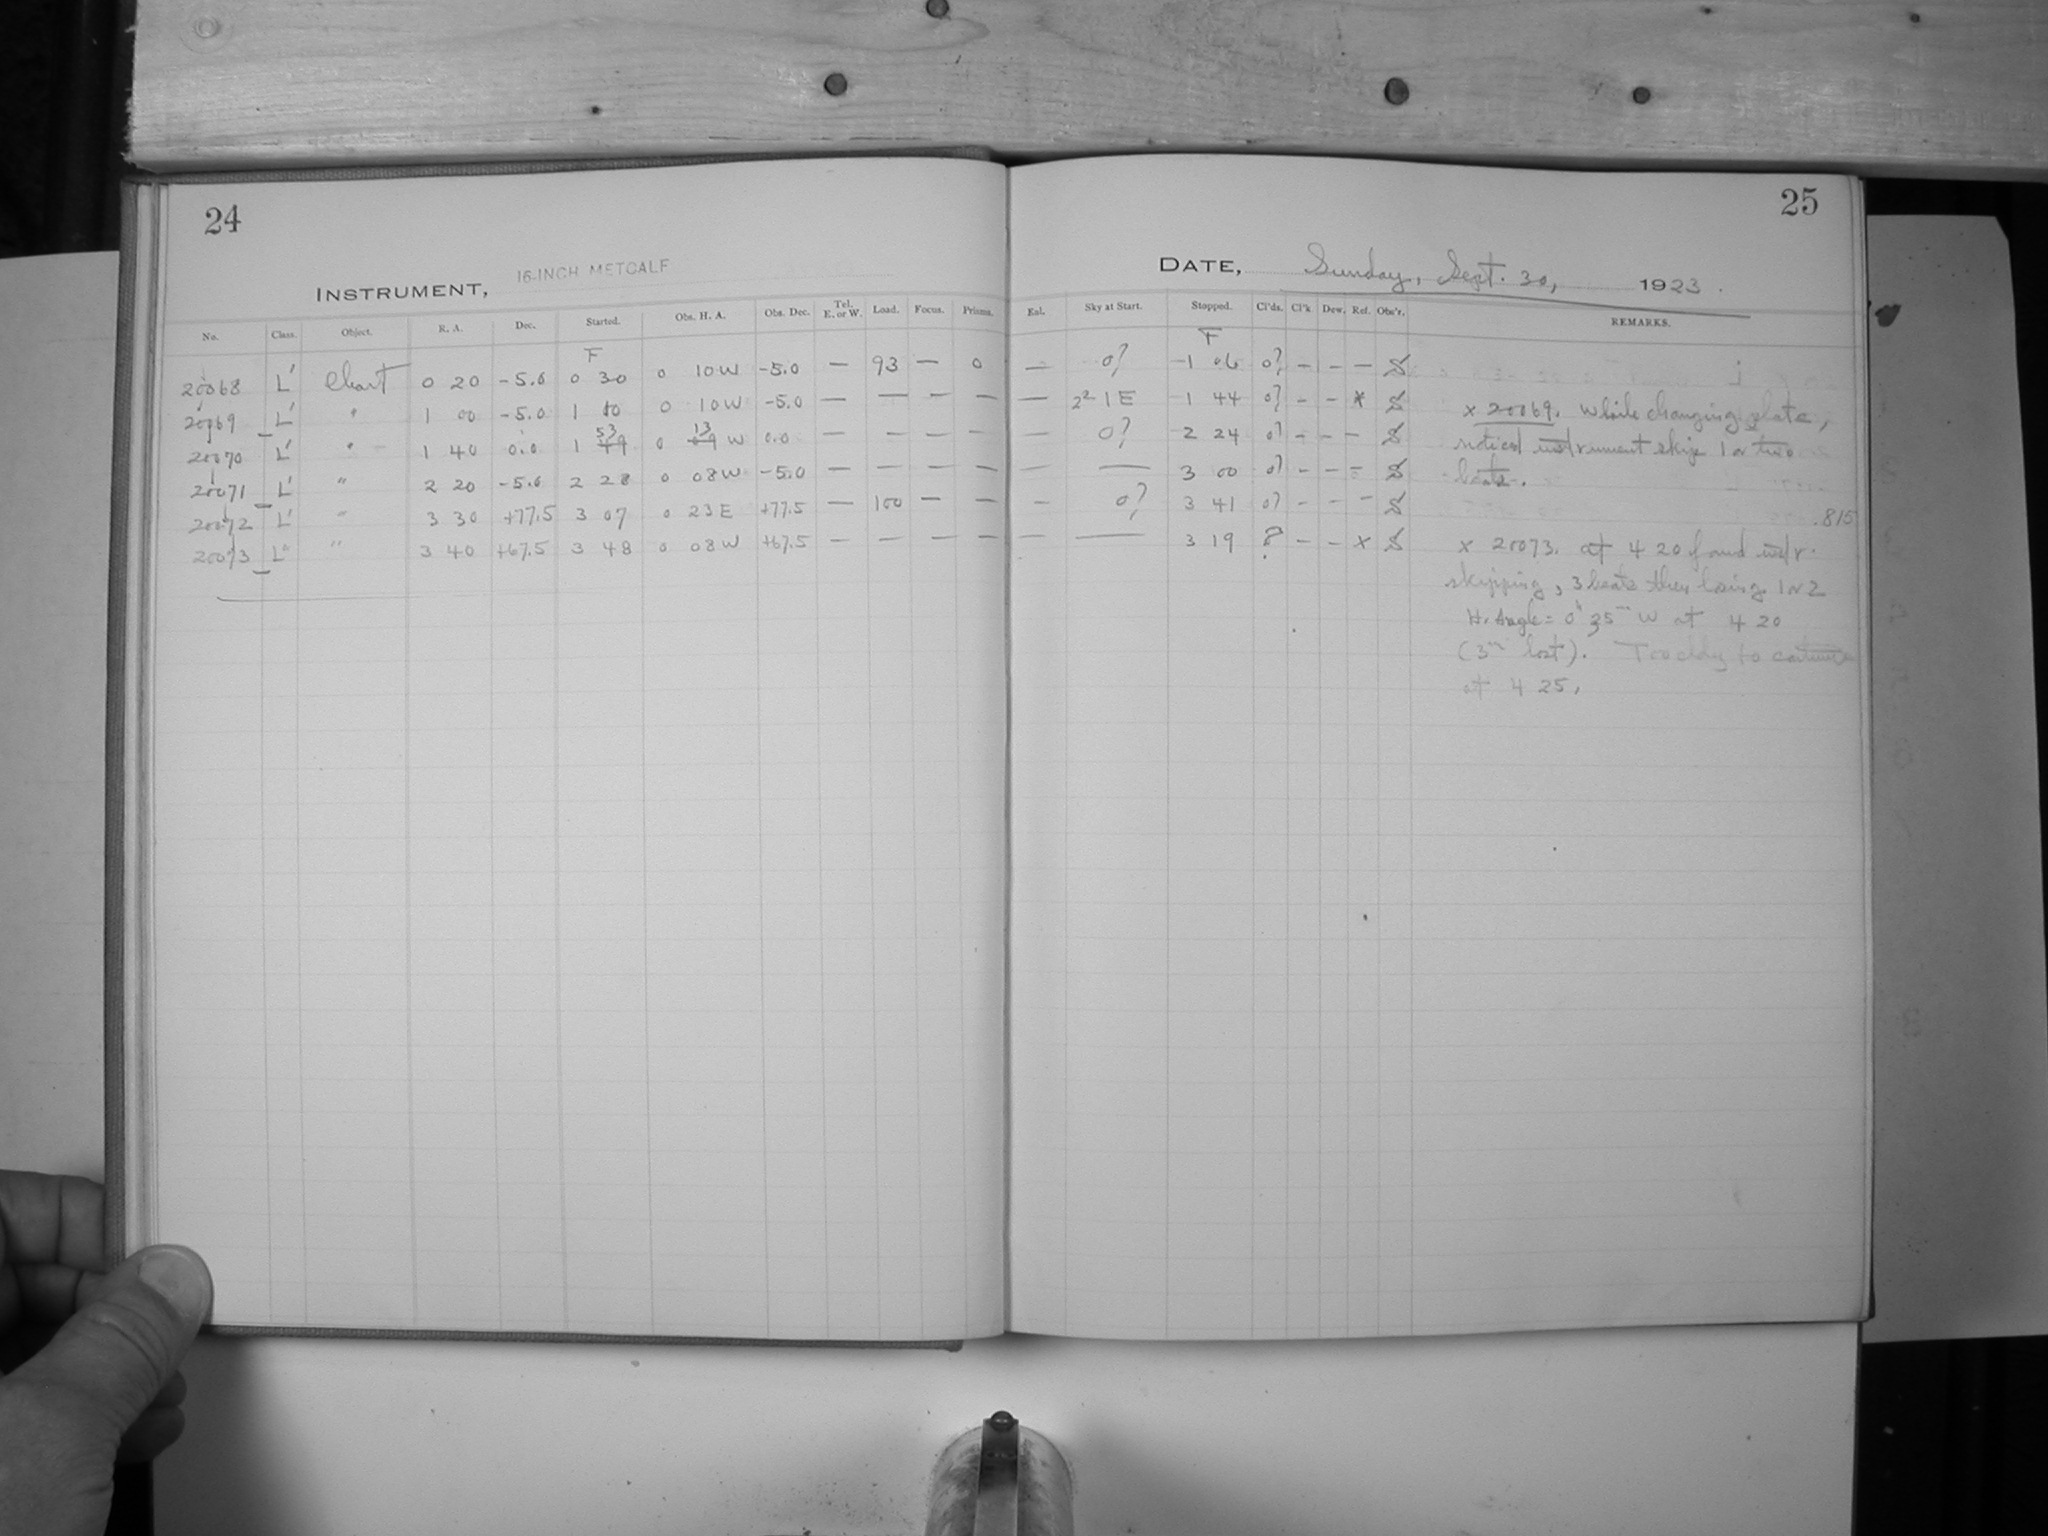 24
25
INSTRUMENT, 16-INCH METCALF
DATE, Sunday, Sept. 30, 1923.
No. Class. Object. R. A. Dec. Started. Obs. H. A. Obs. Dec. Tel. E. or W. Load. Focus. Prisms. Eal. Sky at Start. Stopped. Cl'ds. Cl'k. Dew. Ref. Obs'r. REMARKS.
F F
20068 L' Chart 0 20 -5.0 0 30 0 10 W -5.0 — 93 — 0 — 0? 1 06 0? — — — S
20069 L' " 1 00 -5.0 1 10 0 10 W -5.0 — — — — — 2² 1 E 1 44 0? — — * S x 20069. While changing plate,
53 13
20070 L' " 1 40 0.0 1 49 0 09 W 0.0 — — — — — 0? 2 24 0? — — — S noticed instrument skip 1 or two
20071 L' " 2 20 -5.0 2 28 0 08 W -5.0 — — — — — — 3 00 0? — — — S beats.
20072 L' " 3 30 +77.5 3 07 0 23 E +77.5 — 100 — — — 0? 3 41 0? — — — S .815
20073 L' " 3 40 +67.5 3 48 0 08 W +67.5 — — — — — — 3 19 ? — — x S x 20073. at 4 20 found instr.
skipping, 3 beats then losing 1 or 2
H. Angle = 0ʰ 35ᵐ W at 4 20
(3ᵐ lost). Too cldy to continue
at 4 25.